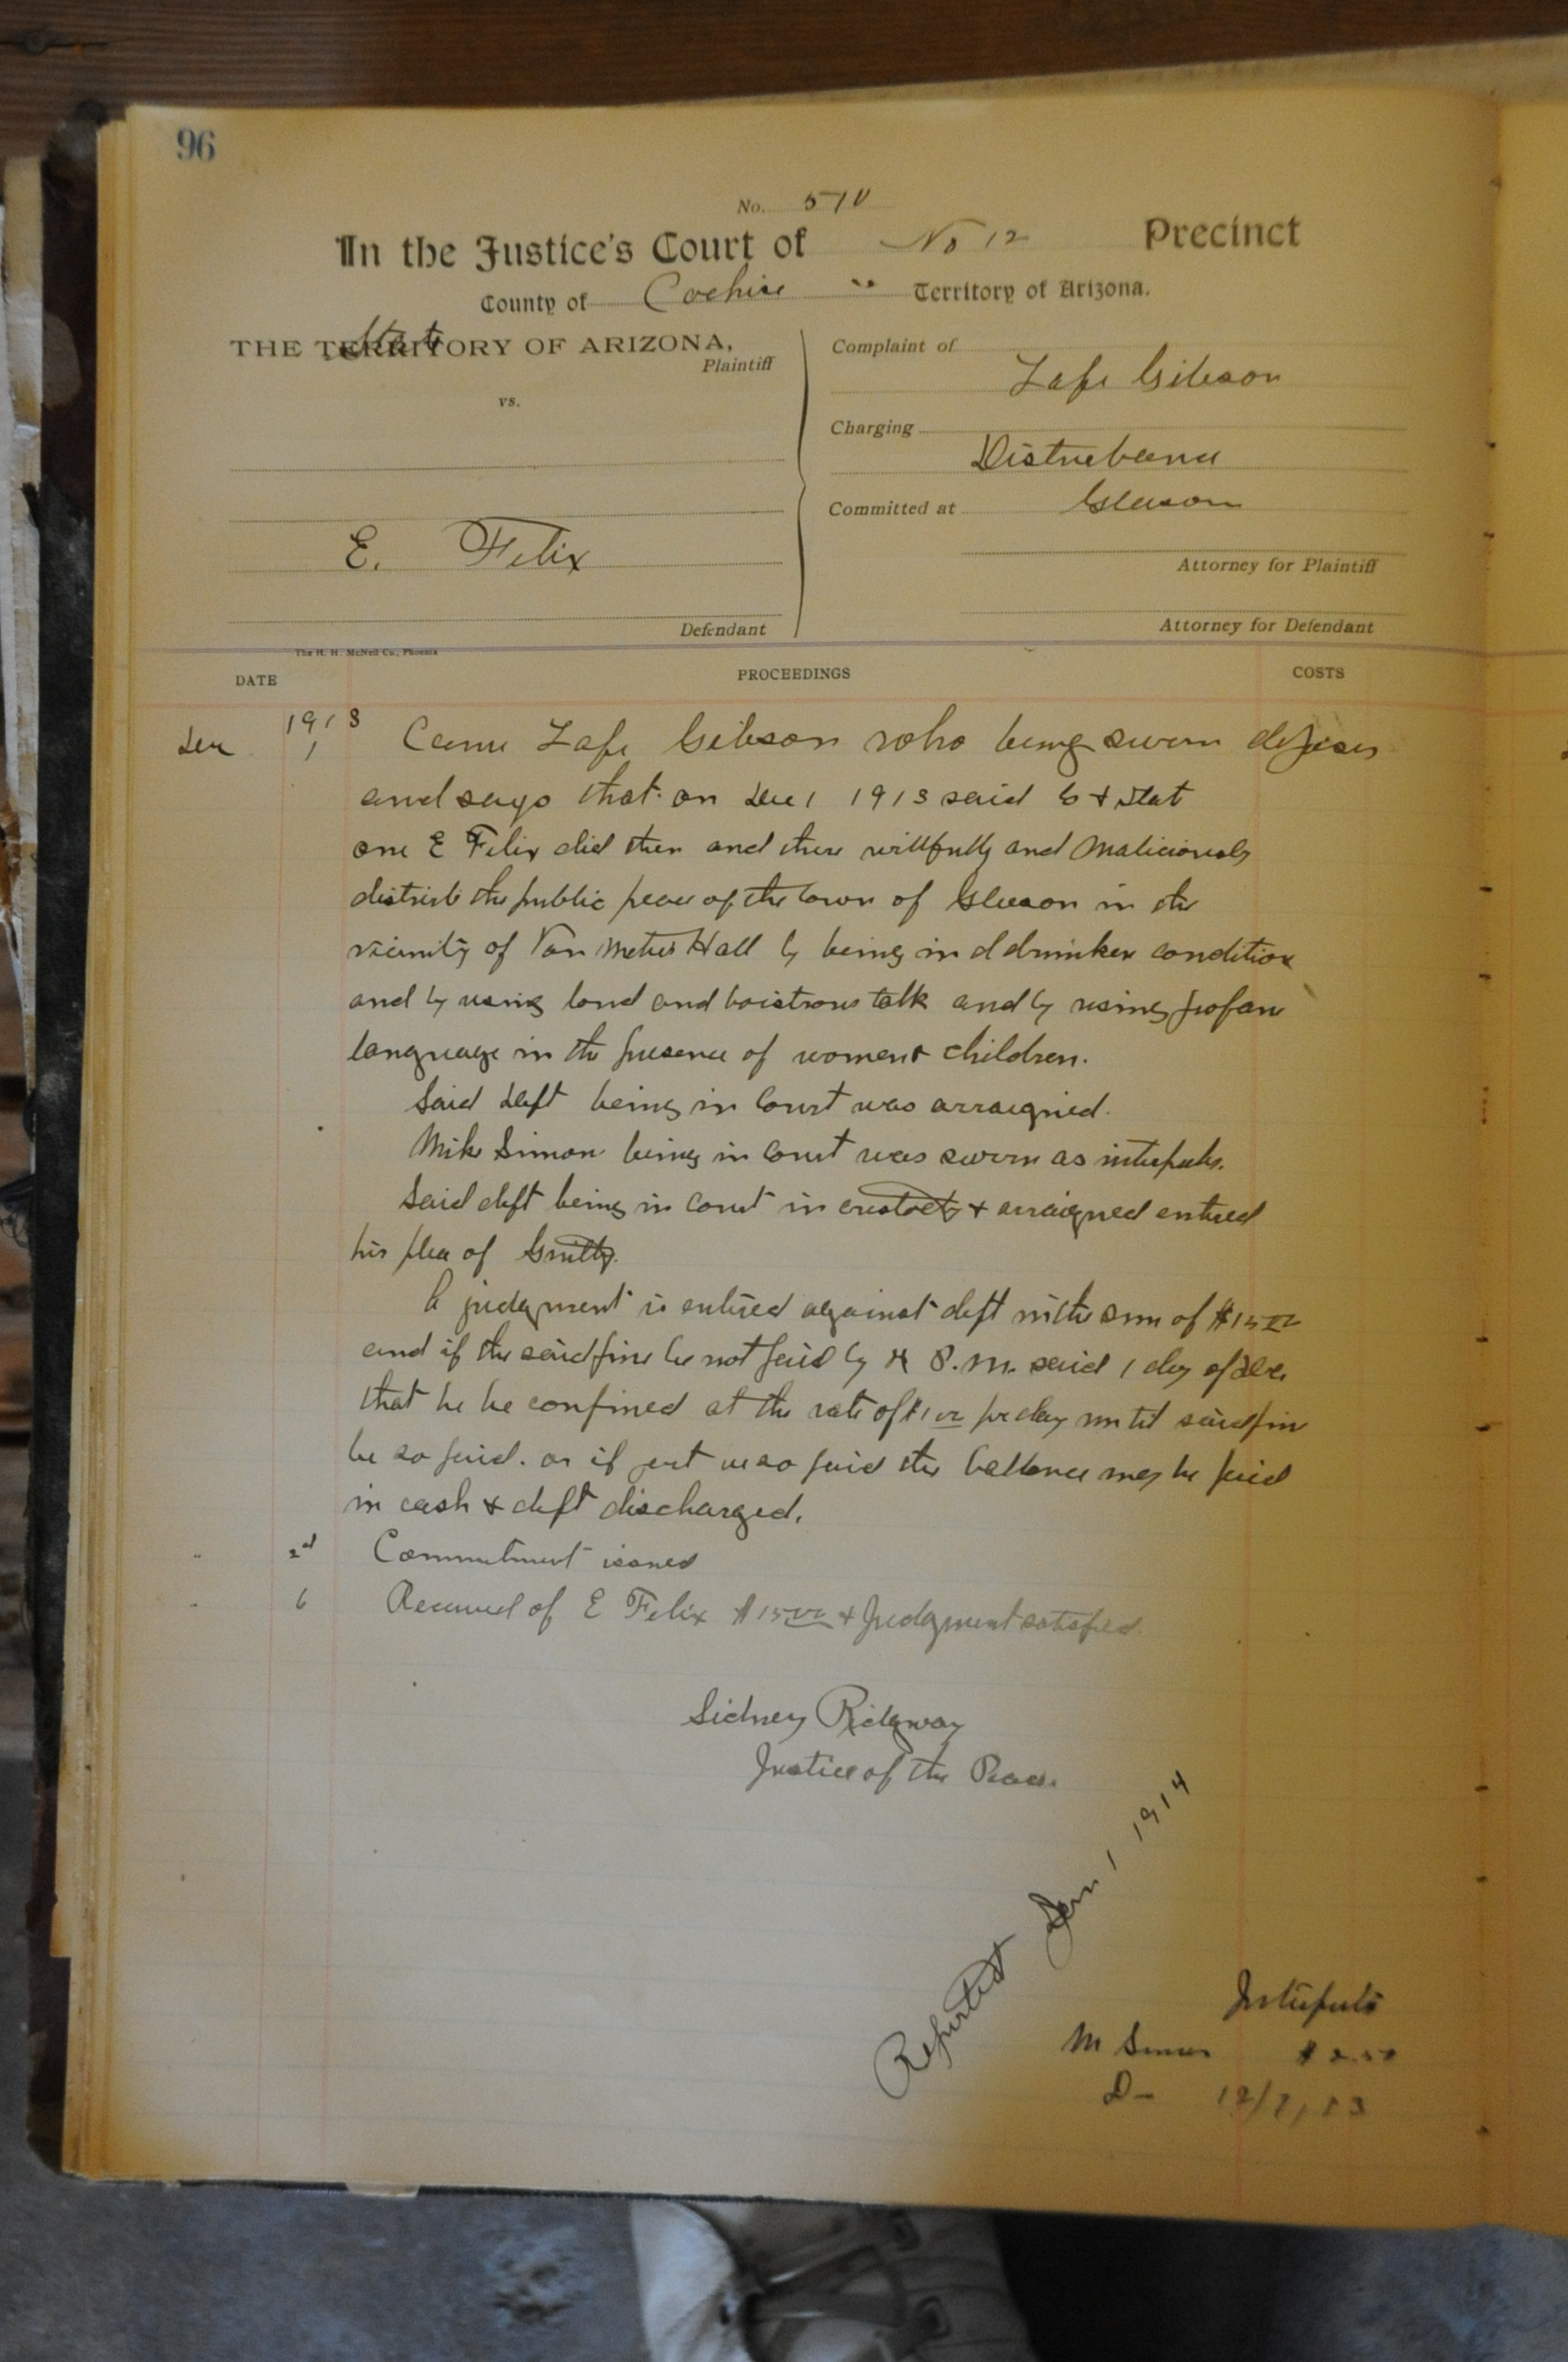 96
No. 510
In the Justice's Court of No 12 Precinct
County of Cochise " Territory of Arizona.
State
THE TERRITORY OF ARIZONA,
Plaintiff
vs.
E. Felix
Defendant
Complaint of
Lafe Gibson
Charging
Disturbance
Committed at Gleason
Attorney for Plaintiff
Attorney for Defendant
The H. H. McNeil Co., Phoenix
DATE PROCEEDINGS COSTS
1913
Dec 1 Came Lafe Gibson who being sworn deposes
and says that on Dec 1 1913 said Co & Stat
one E Felix did then and there willfully and maliciously
disturb the public peace of the town of Gleeson in the
vicinity of Van Meters Hall by being in a drunken condition
and by using loud and boistrous talk and by using profane
language in the presence of women & children.
Said Deft being in Court was arraigned.
Mike Simon being in Court was sworn as interpreter.
Said deft being in Court in custody & arraigned entered
his plea of Guilty.
A judgment is entered against deft in the sum of $15 00
and if the said fine be not paid by P.M. said 1 day of Dec.
that he be confined at the rate of $1 00 per day until said fine
be so paid. or if part is so paid the ballance may be paid
in cash & deft discharged.
" 2nd Commitment issued
" 6 Received of E Felix $15 00 & Judgment satisfied.
Sidney Ridgway
Justice of the Peace.
Reported Jan 1 1914
Interpreter
M Simon $2.50
12/7/13